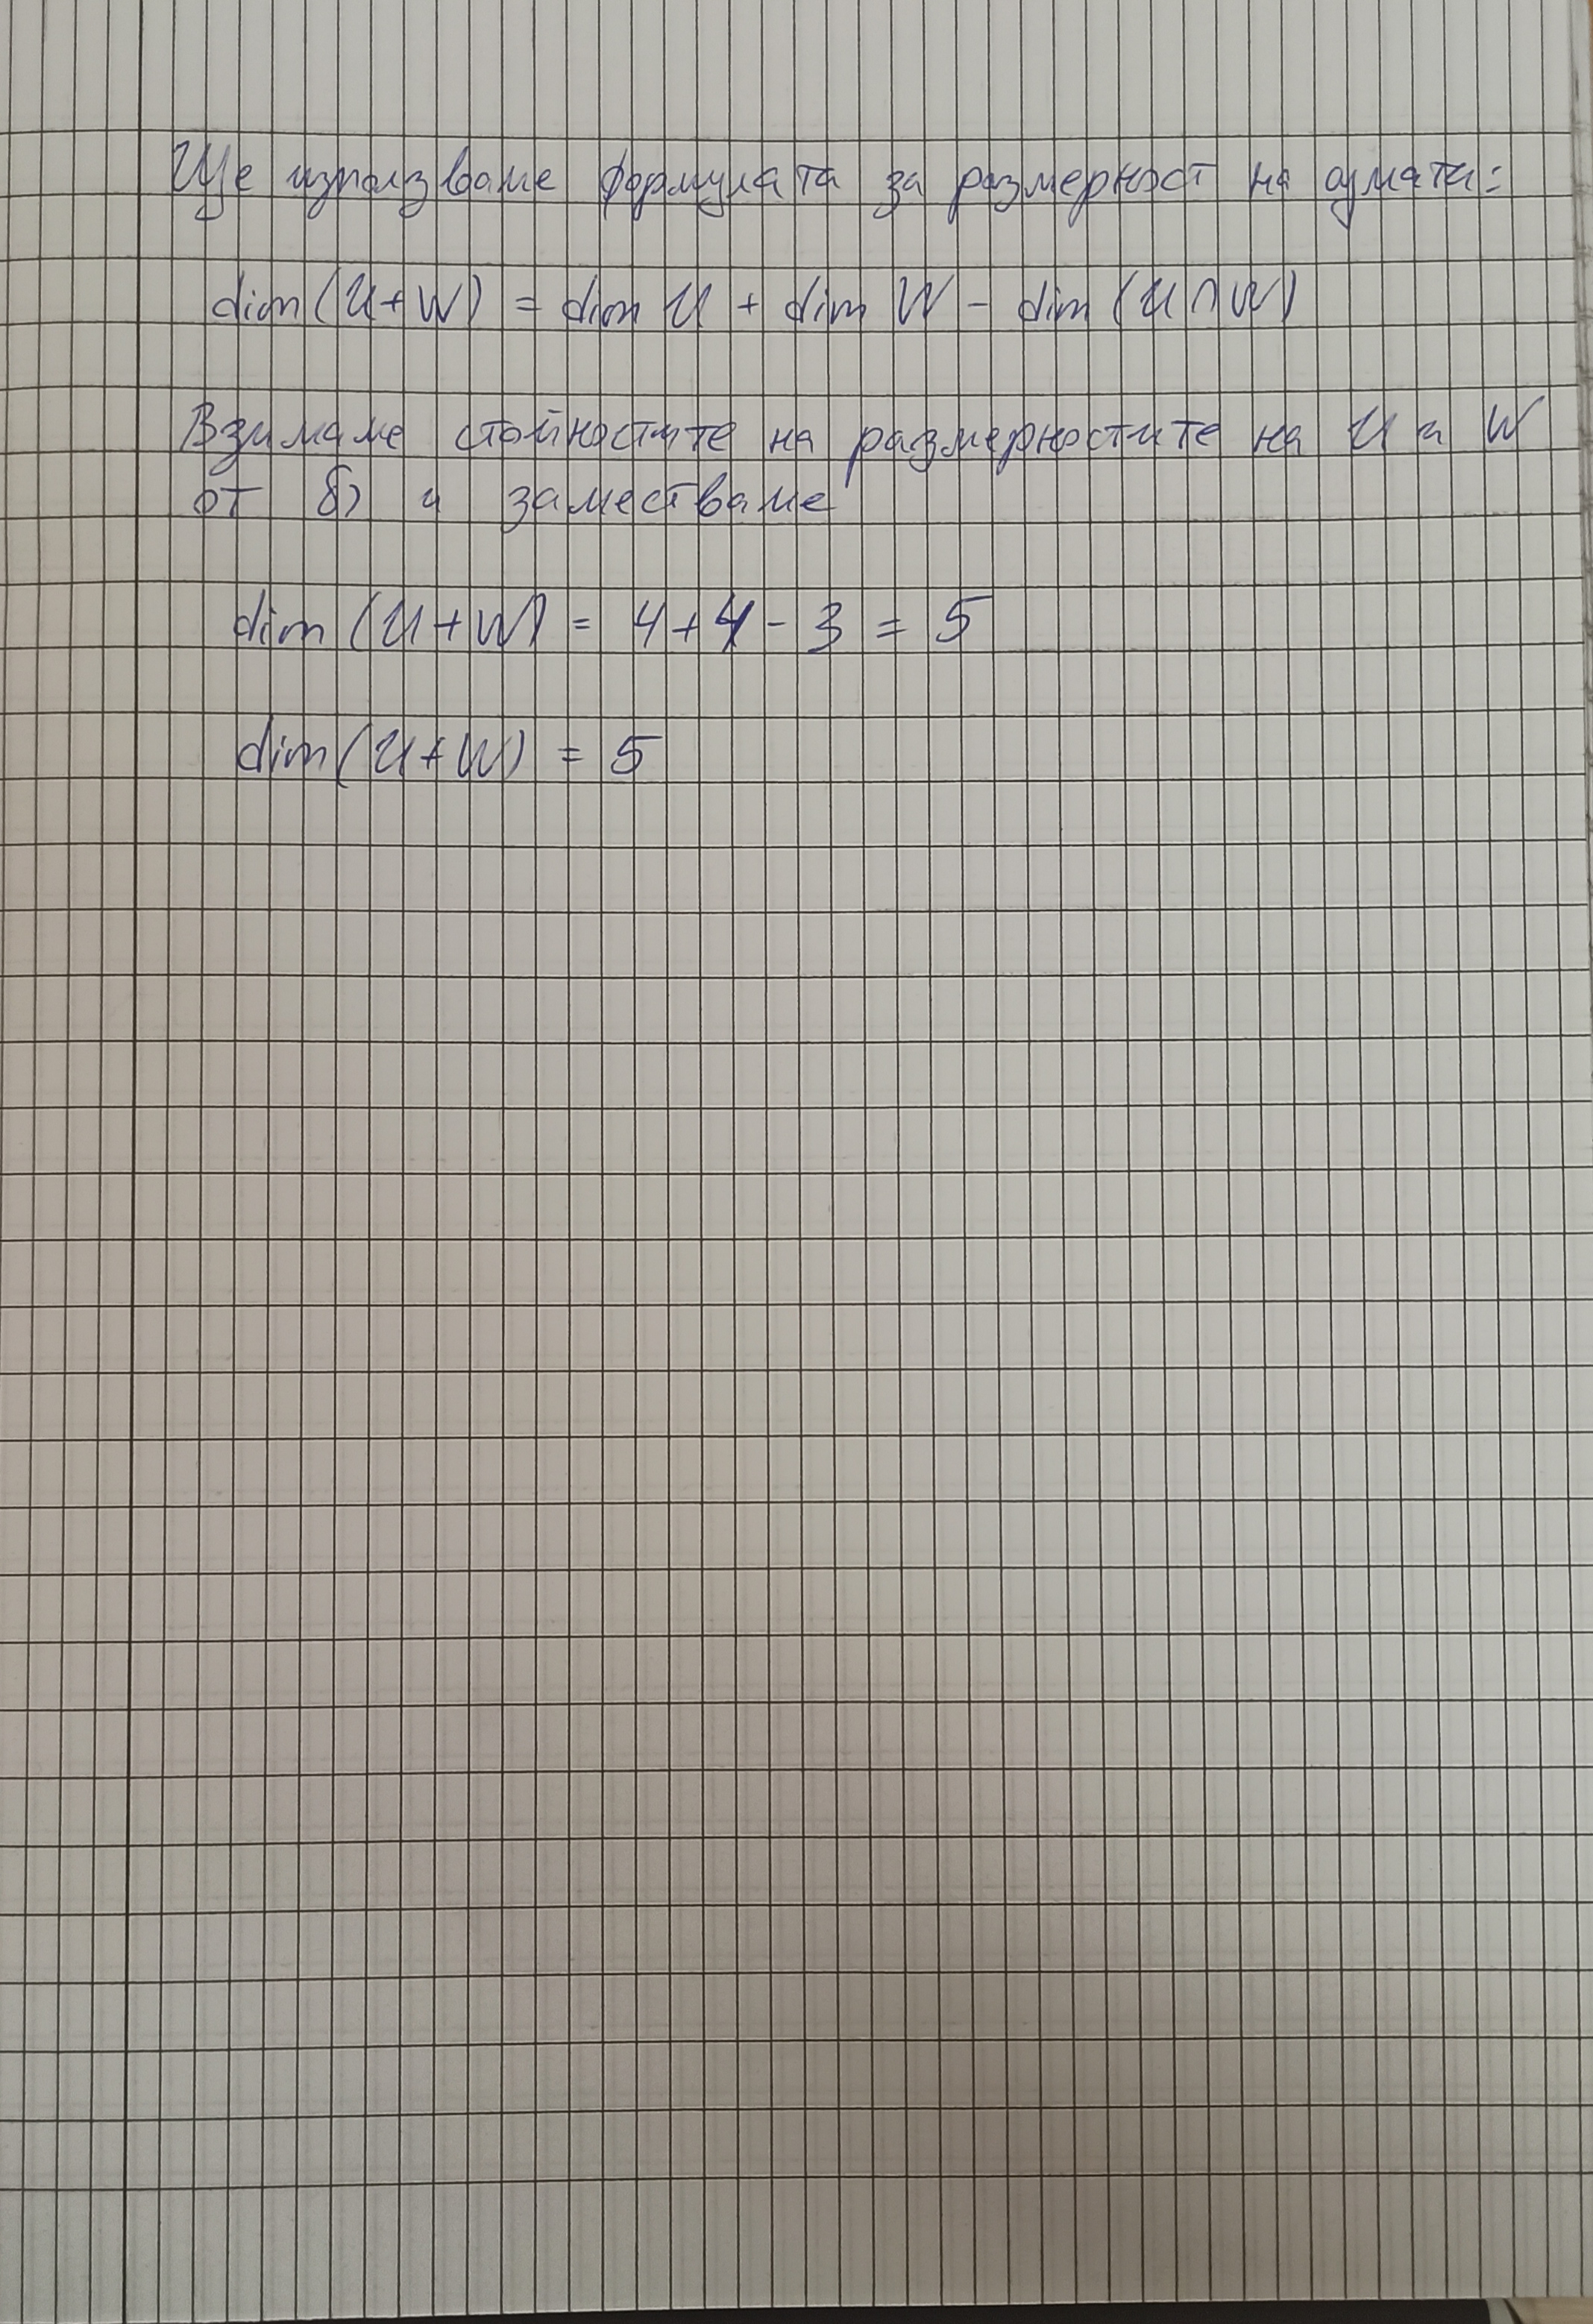 Ще използваме формулата за размерност на сумата:
dim (U+W) = dim U + dim W - dim (U ∩ W)
Взимаме стойностите на размерностите на U и W
от б) и заместваме
dim (U+W) = 4+4-3 = 5
dim (U+W) = 5